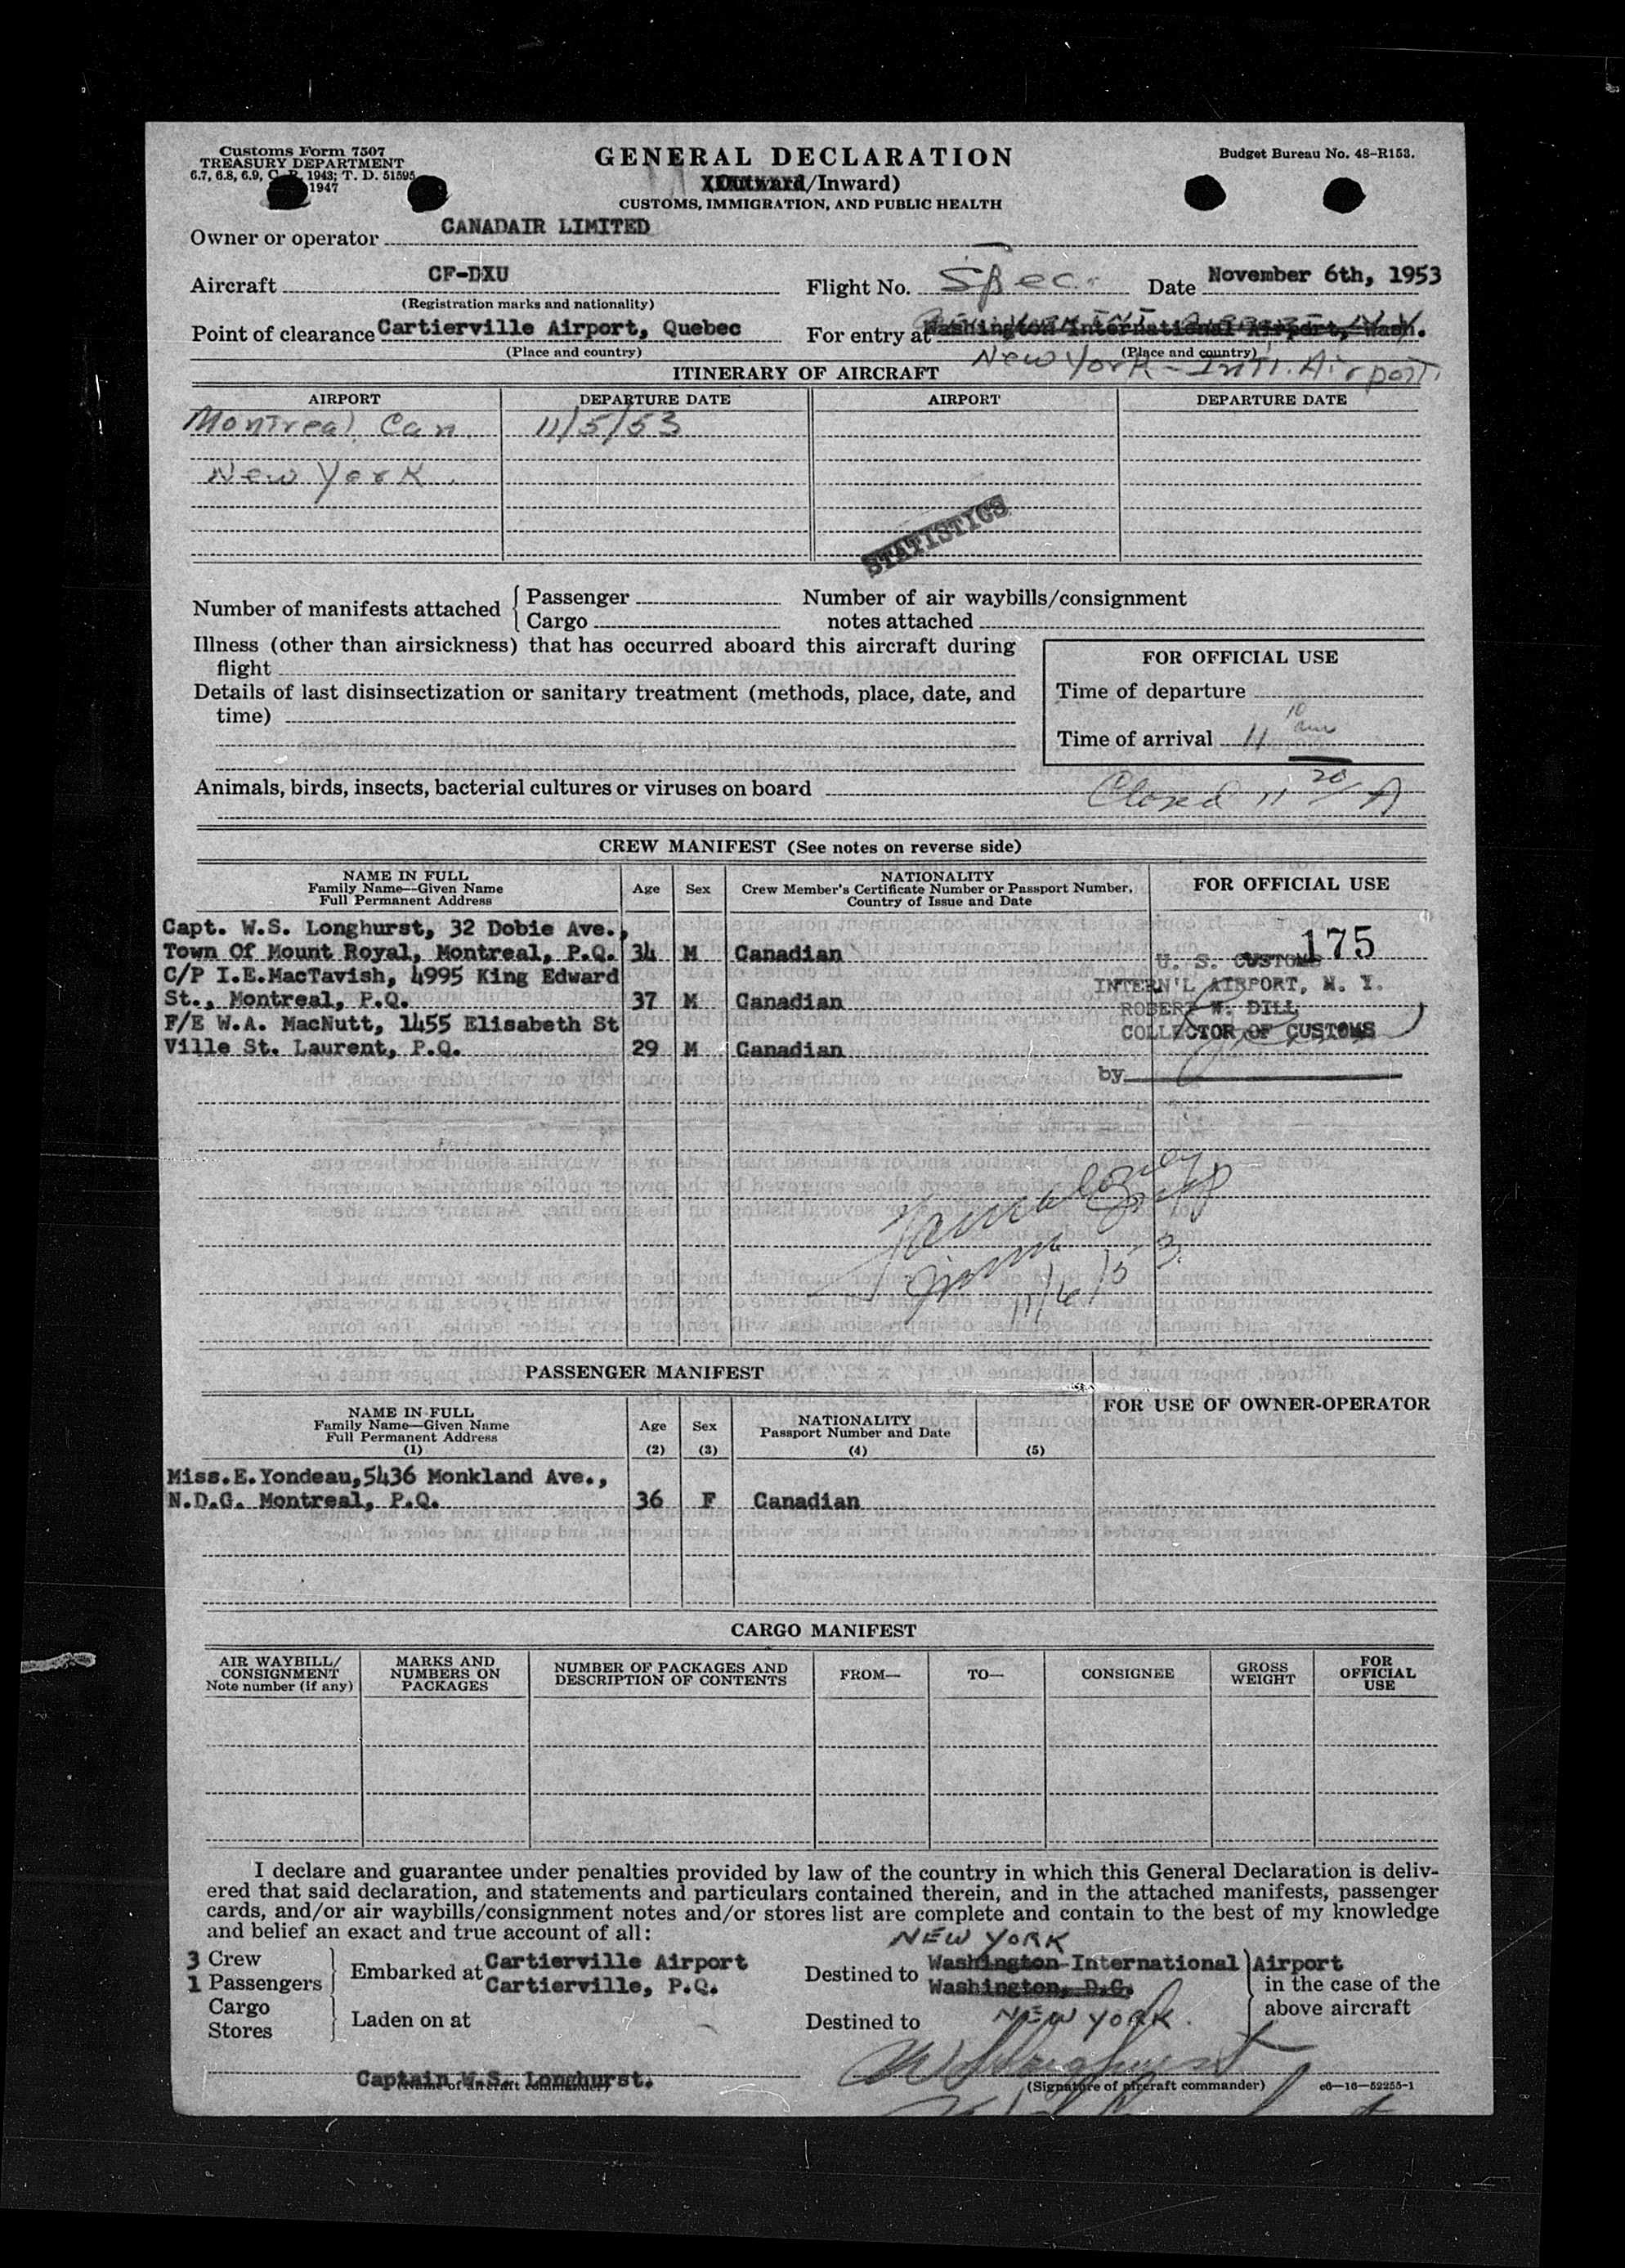 Customs Form 7507
TREASURY DEPARTMENT
6.7, 6.8, 6.9, C. R. 1943; T. D. 51595
1947
GENERAL DECLARATION
(Outward/Inward)
CUSTOMS, IMMIGRATION, AND PUBLIC HEALTH
Budget Bureau No. 48-R153.
Owner or operator CANADAIR LIMITED
Aircraft CF-DXU
(Registration marks and nationality)
Flight No. Spec. Date November 6th, 1953
Point of clearance Cartierville Airport, Quebec
(Place and country)
For entry at Washington International Airport, Wash.
(Place and country)
New York - Int'l. Airport
ITINERARY OF AIRCRAFT
AIRPORT DEPARTURE DATE AIRPORT DEPARTURE DATE
Montreal, Can. 11/5/53
New York.
STATISTICS
Number of manifests attached Passenger
Cargo
Number of air waybills/consignment
notes attached
Illness (other than airsickness) that has occurred aboard this aircraft during
flight
Details of last disinsectization or sanitary treatment (methods, place, date, and
time)
FOR OFFICIAL USE
Time of departure
Time of arrival 11 10 am
Animals, birds, insects, bacterial cultures or viruses on board
Closed 11 20/A
CREW MANIFEST (See notes on reverse side)
NAME IN FULL
Family Name—Given Name
Full Permanent Address
Age
Sex
NATIONALITY
Crew Member's Certificate Number or Passport Number,
Country of Issue and Date
FOR OFFICIAL USE
Capt. W.S. Longhurst, 32 Dobie Ave.,
Town Of Mount Royal, Montreal, P.Q. 34 M Canadian
C/P I.E.MacTavish, 4995 King Edward
St., Montreal, P.Q. 37 M Canadian
F/E W.A. MacNutt, 1455 Elisabeth St
Ville St. Laurent, P.Q. 29 M Canadian
175
U. S. CUSTOMS
INTERN'L AIRPORT, N. Y.
ROBERT W. DILL
COLLECTOR OF CUSTOMS
by
11/6/53
PASSENGER MANIFEST
NAME IN FULL
Family Name—Given Name
Full Permanent Address
(1)
Age
(2)
Sex
(3)
NATIONALITY
Passport Number and Date
(4)
(5)
FOR USE OF OWNER-OPERATOR
Miss.E.Yondeau,5436 Monkland Ave.,
N.D.G. Montreal, P.Q. 36 F Canadian
CARGO MANIFEST
AIR WAYBILL/
CONSIGNMENT
Note number (if any)
MARKS AND
NUMBERS ON
PACKAGES
NUMBER OF PACKAGES AND
DESCRIPTION OF CONTENTS
FROM—
TO—
CONSIGNEE
GROSS
WEIGHT
FOR
OFFICIAL
USE
I declare and guarantee under penalties provided by law of the country in which this General Declaration is deliv-
ered that said declaration, and statements and particulars contained therein, and in the attached manifests, passenger
cards, and/or air waybills/consignment notes and/or stores list are complete and contain to the best of my knowledge
and belief an exact and true account of all:
NEW YORK
3 Crew
1 Passengers
Cargo
Stores
Embarked at Cartierville Airport
Cartierville, P.Q.
Laden on at
Destined to Washington International Airport
Washington, D.C.
in the case of the
above aircraft
Destined to NEW YORK.
Captain W.S. Longhurst.
(Name of aircraft commander)
W Longhurst
(Signature of aircraft commander)
c6—16—52255-1